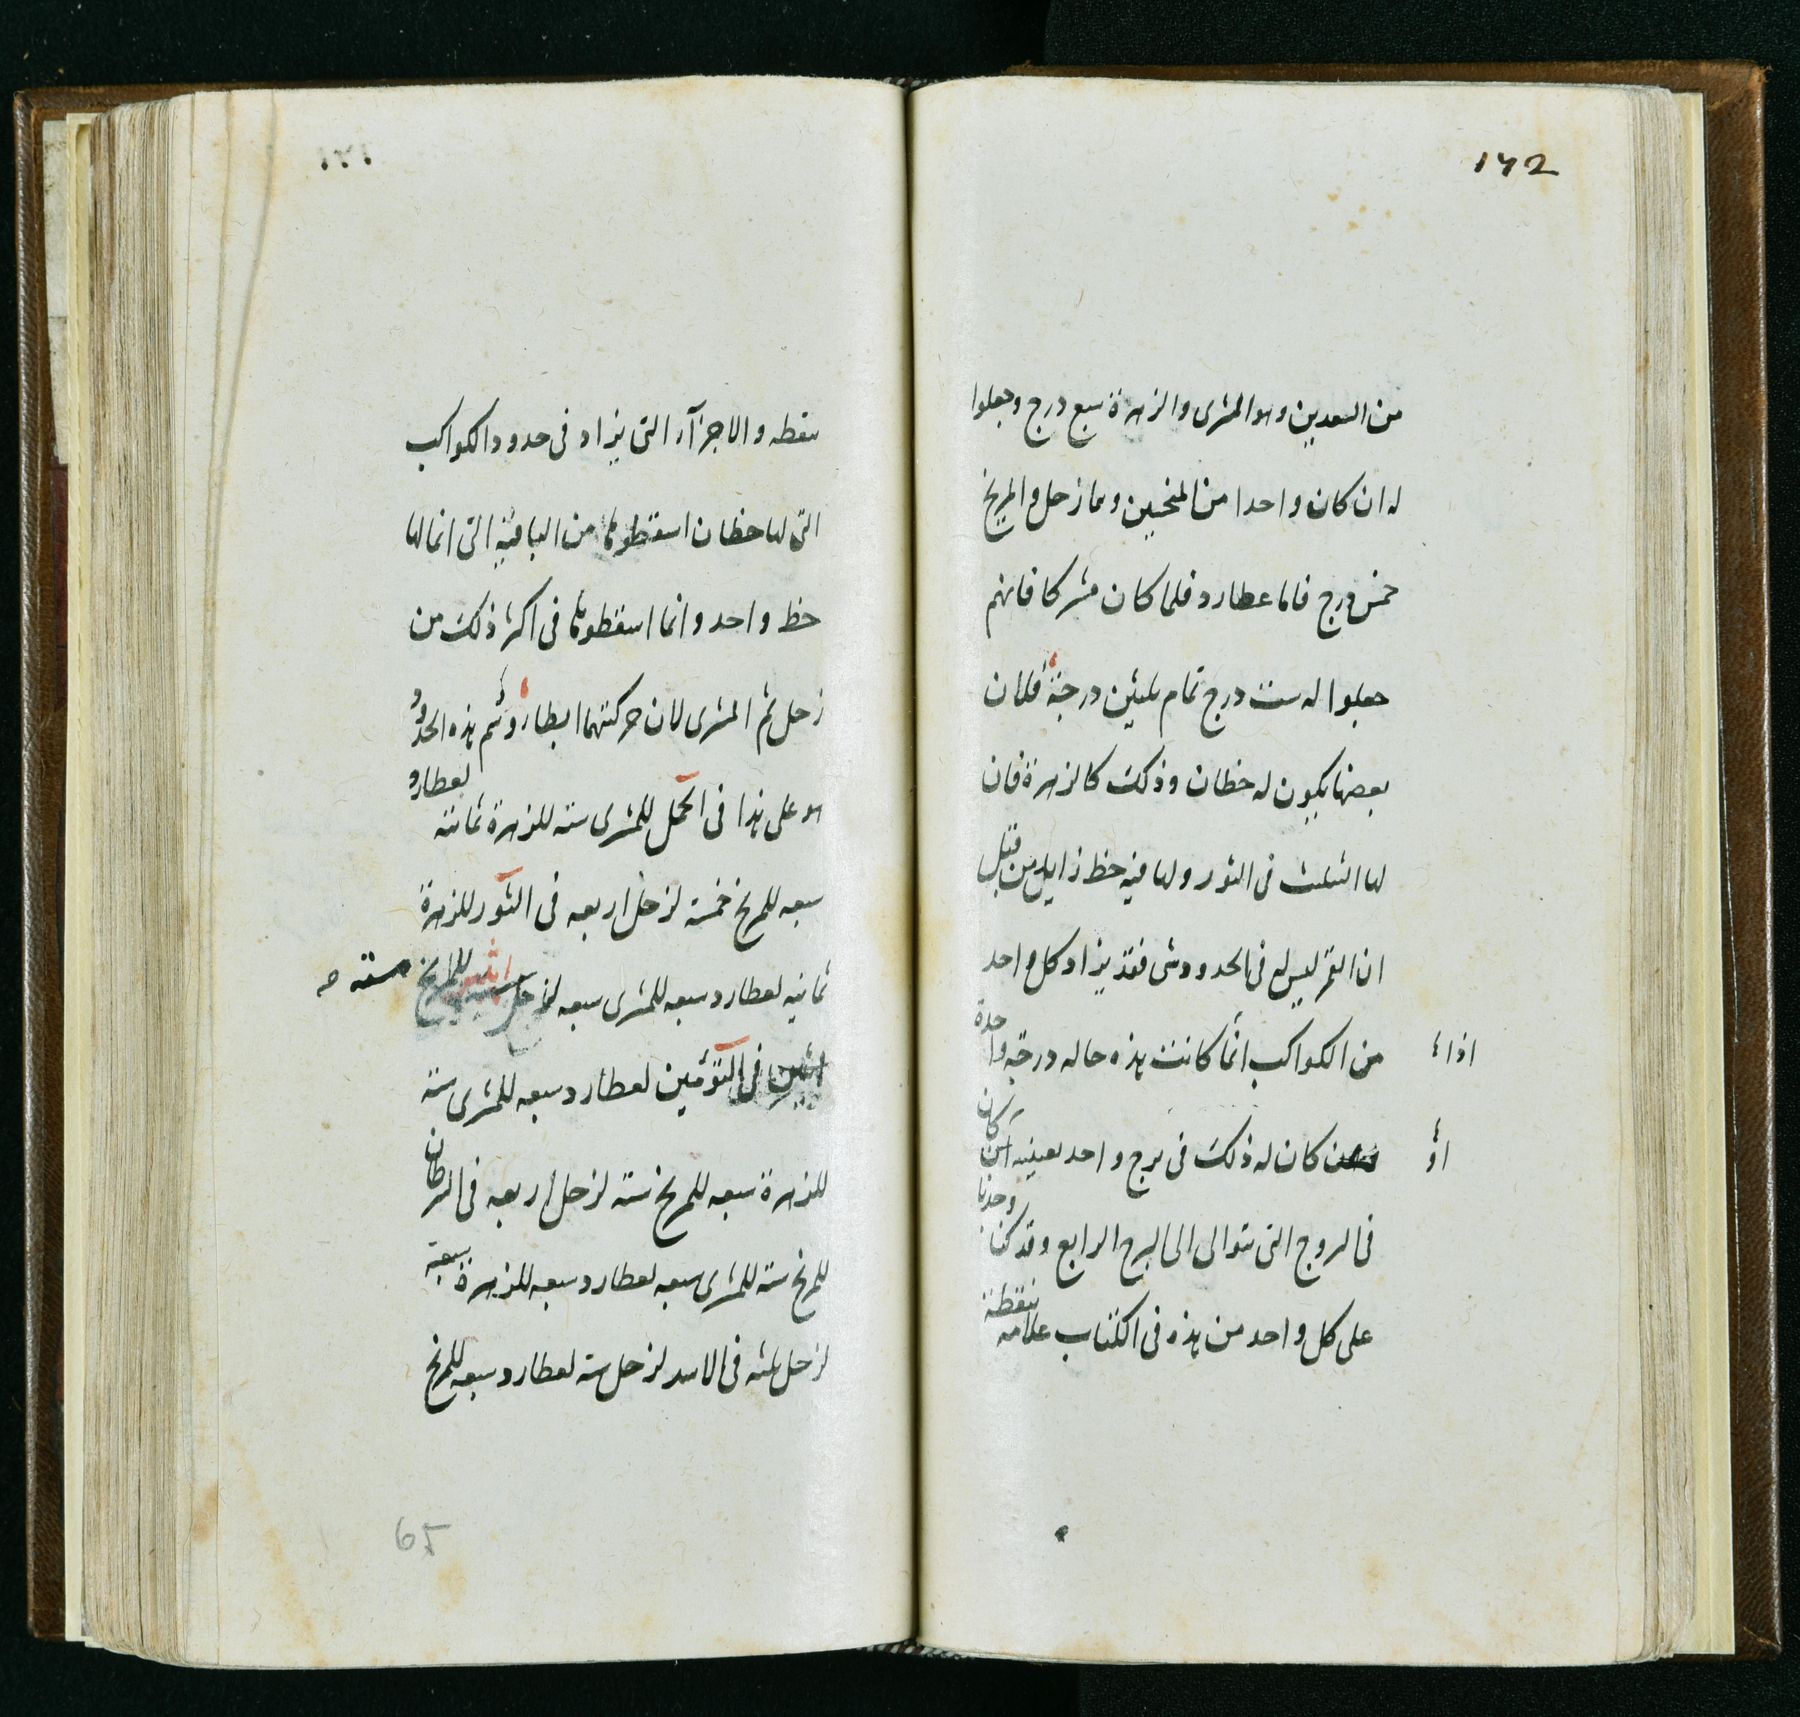 172
من السعدين وهو المشرى والزهرة سبع درج وجعلوا
له ان كان واحدا من المنحسين وهما زحل والمريخ
خمس درج فاما عطارد فلما كان مشركا فانهم
جعلوا له ست درج تمام ثلثين درجة فلان
بعضها يكون له حظان وذلك كالزهرة فان
لها التثليث فى الثور ولها فيه حظ زايل من قبل
ان القمر ليس له فى الحدود شى فقد يزاد كل واحد
من الكواكب انما كانت هذه حاله درجة واحدة
اذا
كان له ذلك فى برج واحد بعينه كان
او
فى البروج التى تتوالى الى البرج الرابع وقد كنا وجدنا
على كل واحد من هذه فى الكتاب علامة بنقطة
١٧١
بنقطه والاجزآء التى يزاد فى حدود الكواكب
التى لها حظان اسقطوها من الباقية التى انما لها
حظ واحد وانما اسقطوها فى اكثر ذلك من
زحل ثم المشرى لان حركتهما ابطاء وثم هذه الحدود
هو على هذا فى الحمل للمشرى سته للزهرة ثمانته لعطارد
سبعه للمريخ خمسة لزحل اربعه فى الثور للزهرة
ثمانيه لعطارد سبعه للمشرى سبعه لزحل للمريخ سته
اثنين فى التوئمين لعطارد سبعه للمشرى سته
للزهرة سبعه للمريخ سته لزحل اربعه فى السرطان
للمريخ سته للمشرى سبعه لعطارد سبعه للزهرة سبعة
لزحل ثلثه فى الاسد لزحل سته لعطارد سبعه للمريخ
65